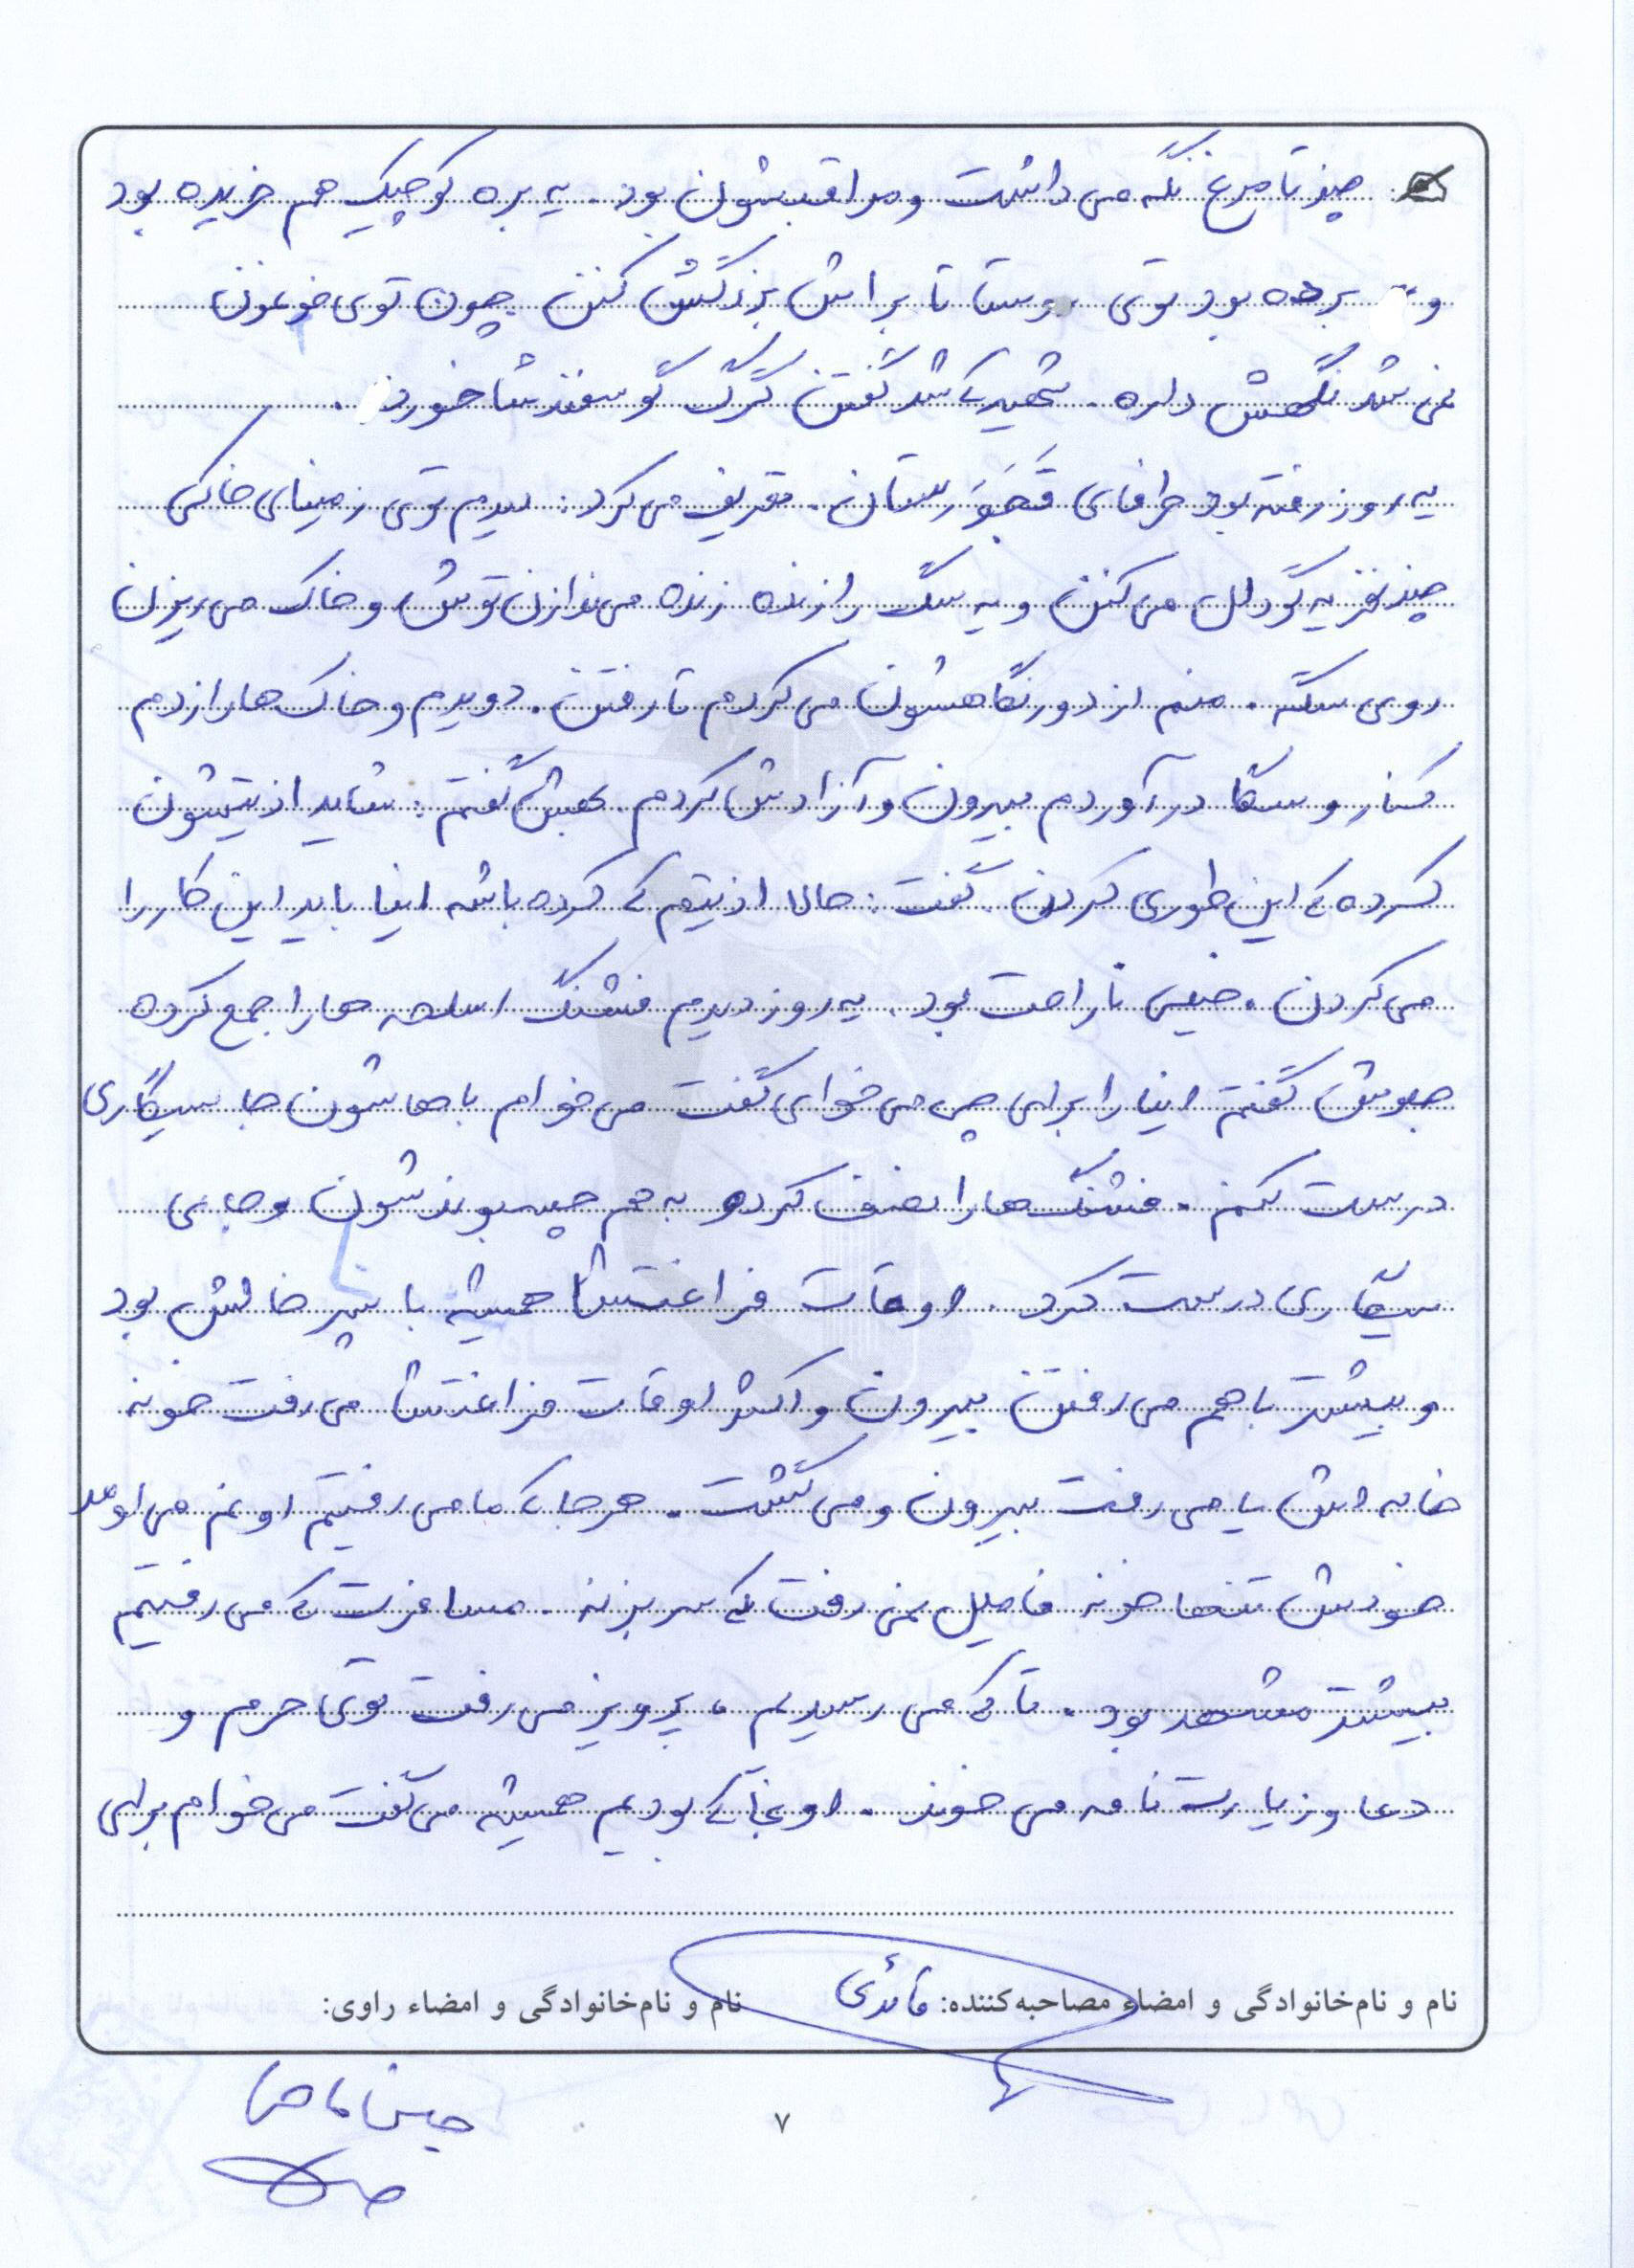 چند تا مرغ نگه می داشت و مراقبشون بود. یه بره کوچیک هم خریده بود
و برده بود توی روستا تا براش بزرگش کنن چون توی خونمون
نمی شد نگهش داره. شهید که شد گفتن گرگ گوسفندشا خورده.
یه روز رفته بود طرفای قَجَوَرستان. تعریف می کرد: دیدم توی زمینای خاکی
چند نفر یه گودال می کنن و یه سگ را زنده زنده می ندازن توش و خاک می ریزن
روی سگه. منم از دور نگاهشون می کردم تا رفتن. دویدم و خاک ها را زدم
کنار و سگا در آوردم بیرون و آزادش کردم. بهش گفتم: شاید اذیتشون
کرده که این طوری کردن. گفت: حالا اذیتم که کرده باشه اینا باید این کار را
می کردن. خیلی ناراحت بود. یه روز دیدم فشنگ اسلحه ها را جمع کرده
جلوش گفتم اینا را برای چی می خوای گفت می خوام باهاشون جا سیگاری
درست کنم. فشنگ ها را نصف کرد و به هم چسبوندشون و جای
سیگاری درست کرد. اوقات فراغتشا همیشه با پسر خالش بود
و بیشتر با هم می رفتن بیرون و اکثر اوقات فراغتشا می رفت خونه
خاله اش یا می رفت بیرون و می گشت. هر جا که ما می رفتیم اونم می اومد
خودش تنها خونه فامیل نمی رفت که سر بزنه. مسافرت که می رفتیم
بیشتر مشهد بود. تا که می رسیدیم، پرویز می رفت توی حرم و
دعا و زیارت نامه می خوند. اونجا که بودیم همیشه می گفت می خوام برای
نام و نام‌خانوادگی و امضاء مصاحبه‌کننده: قائدی نام و نام‌خانوادگی و امضاء راوی:
۷